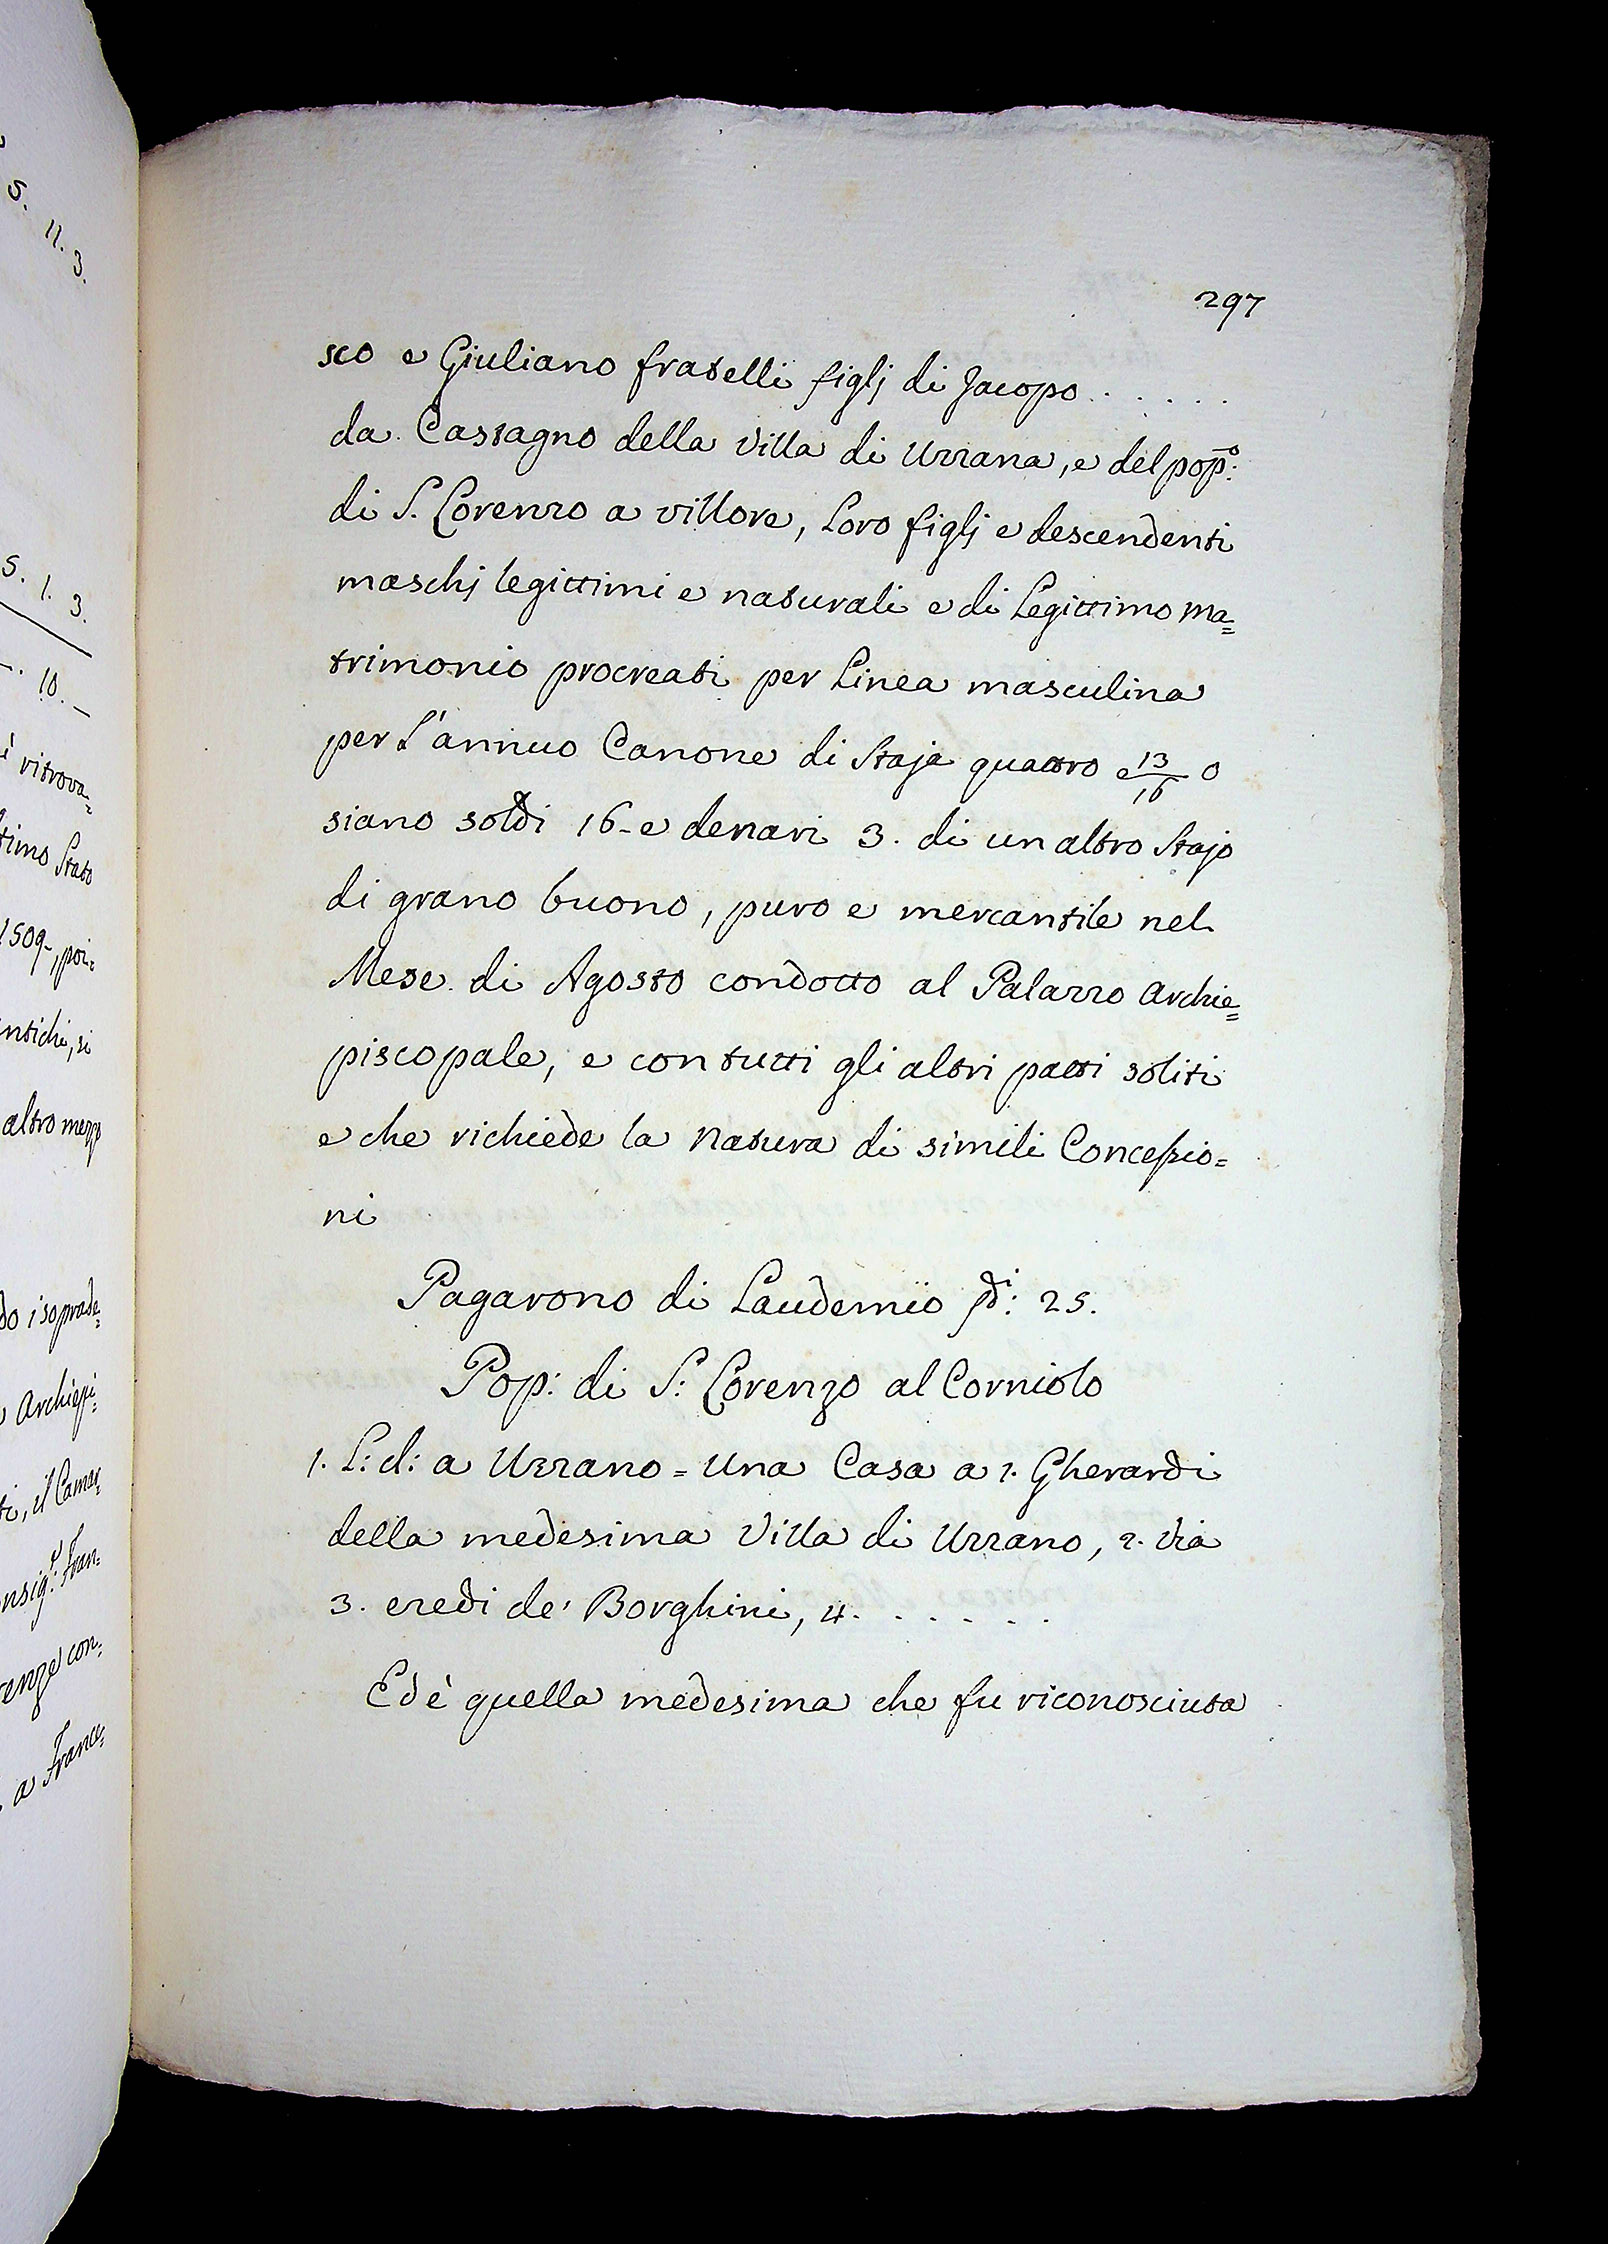 S. 11. 3.
S. 1. 3.
10. —
è ritrova=
timo Stato
1509-, poi=
antichi, si
altro mezzo
do i soprade=
Archiepi=
ti, il Camar=
nsig.r Fran=
renze con=
a France=
297
sco e Giuliano fratelli figlj di Jacopo . . . . . .
da Castagno della Villa di Uzzana, e del pop.o:
di S. Lorenzo a villore, Loro figlj e descendenti
maschj legittimi e naturali e di Legittimo ma=
trimonio procreati per Linea masculina
per L'annuo Canone di Staja quattro e 13/16 o
siano soldi 16- e denari 3. di un altro Stajo
di grano buono, puro e mercantile nel
Mese di Agosto condotto al Palazzo Archie=
piscopale, e con tutti gli altri patti soliti
e che richiede la natura di simili Concessio=
ni
Pagarono di Laudemio ƒdi: 25.
Pop: di S: Lorenzo al Corniolo
1. L: d: a Uzzano = Una Casa a 1. Gherardi
della medesima Villa di Uzzano, 2. Via
3. eredi de' Borghini, 4. . . . . . .
Ed è quella medesima che fu riconosciuta